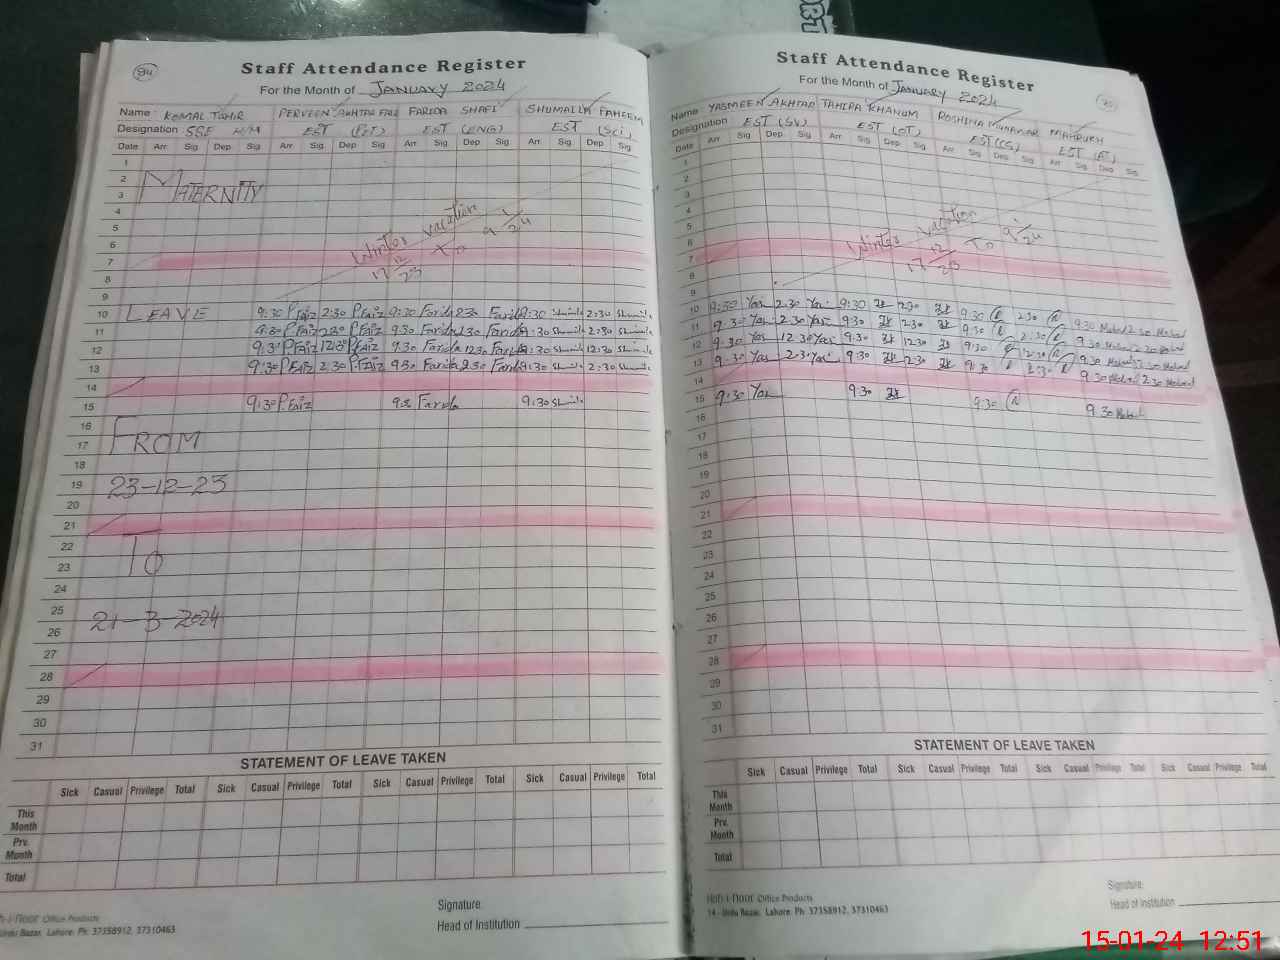 94
Staff Attendance Register
For the Month of JANUARY 2024
Name: KOMAL TAHIR PERVEEN AKHTAR FAIZ FARIDA SHAFI SHUMAILA FAHEEM
Designation SSE H/M EST (PET) EST (ENG) EST (Sci)
Date Arr Sig Dep Sig Arr Sig Dep Sig Arr Sig Dep Sig Arr Sig Dep Sig
1
2
MATERNITY
3
4
Winter vacation
5
17 12/23 To 9 1/24
6
7
8
9
10 LEAVE 9:30 P.Faiz 2:30 P.Faiz 9:30 Farida 2:30 Farida 9:30 2:30
11 9:30 P.Faiz 2:30 P.Faiz 9:30 Farida 2:30 Farida 9:30 2:30
12 9:30 P.Faiz 12:30 P.Faiz 9:30 Farida 12:30 Farida 9:30 12:30
13 9:30 P.Faiz 2:30 P.Faiz 9:30 Farida 2:30 Farida 9:30 2:30
14
15 9:30 P.Faiz 9:30 Farida 9:30
16
17 FROM
18
19 23-12-23
20
21
22
23 To
24
25
21-3-2024
26
27
28
29
30
31
STATEMENT OF LEAVE TAKEN
Sick Casual Privilege Total Sick Casual Privilege Total Sick Casual Privilege Total Sick Casual Privilege Total
This Month
Prv. Month
Total
Signature:
Head of Institution
Office Products
Urdu Bazar, Lahore. Ph: 37358912, 37310463
Staff Attendance Register
For the Month of JANUARY 2024
Name YASMEEN AKHTAR TAHIRA KHANUM ROSHINA MUNAWAR MAHRUKH
Designation EST (SV) EST (OT) EST (CS) EST (AT)
Date Arr Sig Dep Sig Arr Sig Dep Sig Arr Sig Dep Sig Arr Sig Dep Sig
1
2
3
4
5
Winter vacation
6
17 12/23 To 9 1/24
7
8
9
10 9:30 Yas 2:30 Yas 9:30 2:30 9:30 2:30 9:30 2:30
11 9:30 Yas 2:30 Yas 9:30 2:30 9:30 2:30 9:30 2:30
12 9:30 Yas 12:30 Yas 9:30 12:30 9:30 12:30 9:30
13 9:30 Yas 2:30 Yas 9:30 2:30 9:30 2:30 9:30 2:30
14
15 9:30 Yas 9:30 9:30 9:30
16
17
18
19
20
21
22
23
24
25
26
27
28
29
30
31
STATEMENT OF LEAVE TAKEN
Sick Casual Privilege Total Sick Casual Privilege Total Sick Casual Privilege Total Sick Casual Privilege Total
This Month
Prv. Month
Total
Signature:
Head of Institution
Koh-i-Noor Office Products
14 - Urdu Bazar, Lahore. Ph: 37358912, 37310463
15-01-24 12:51